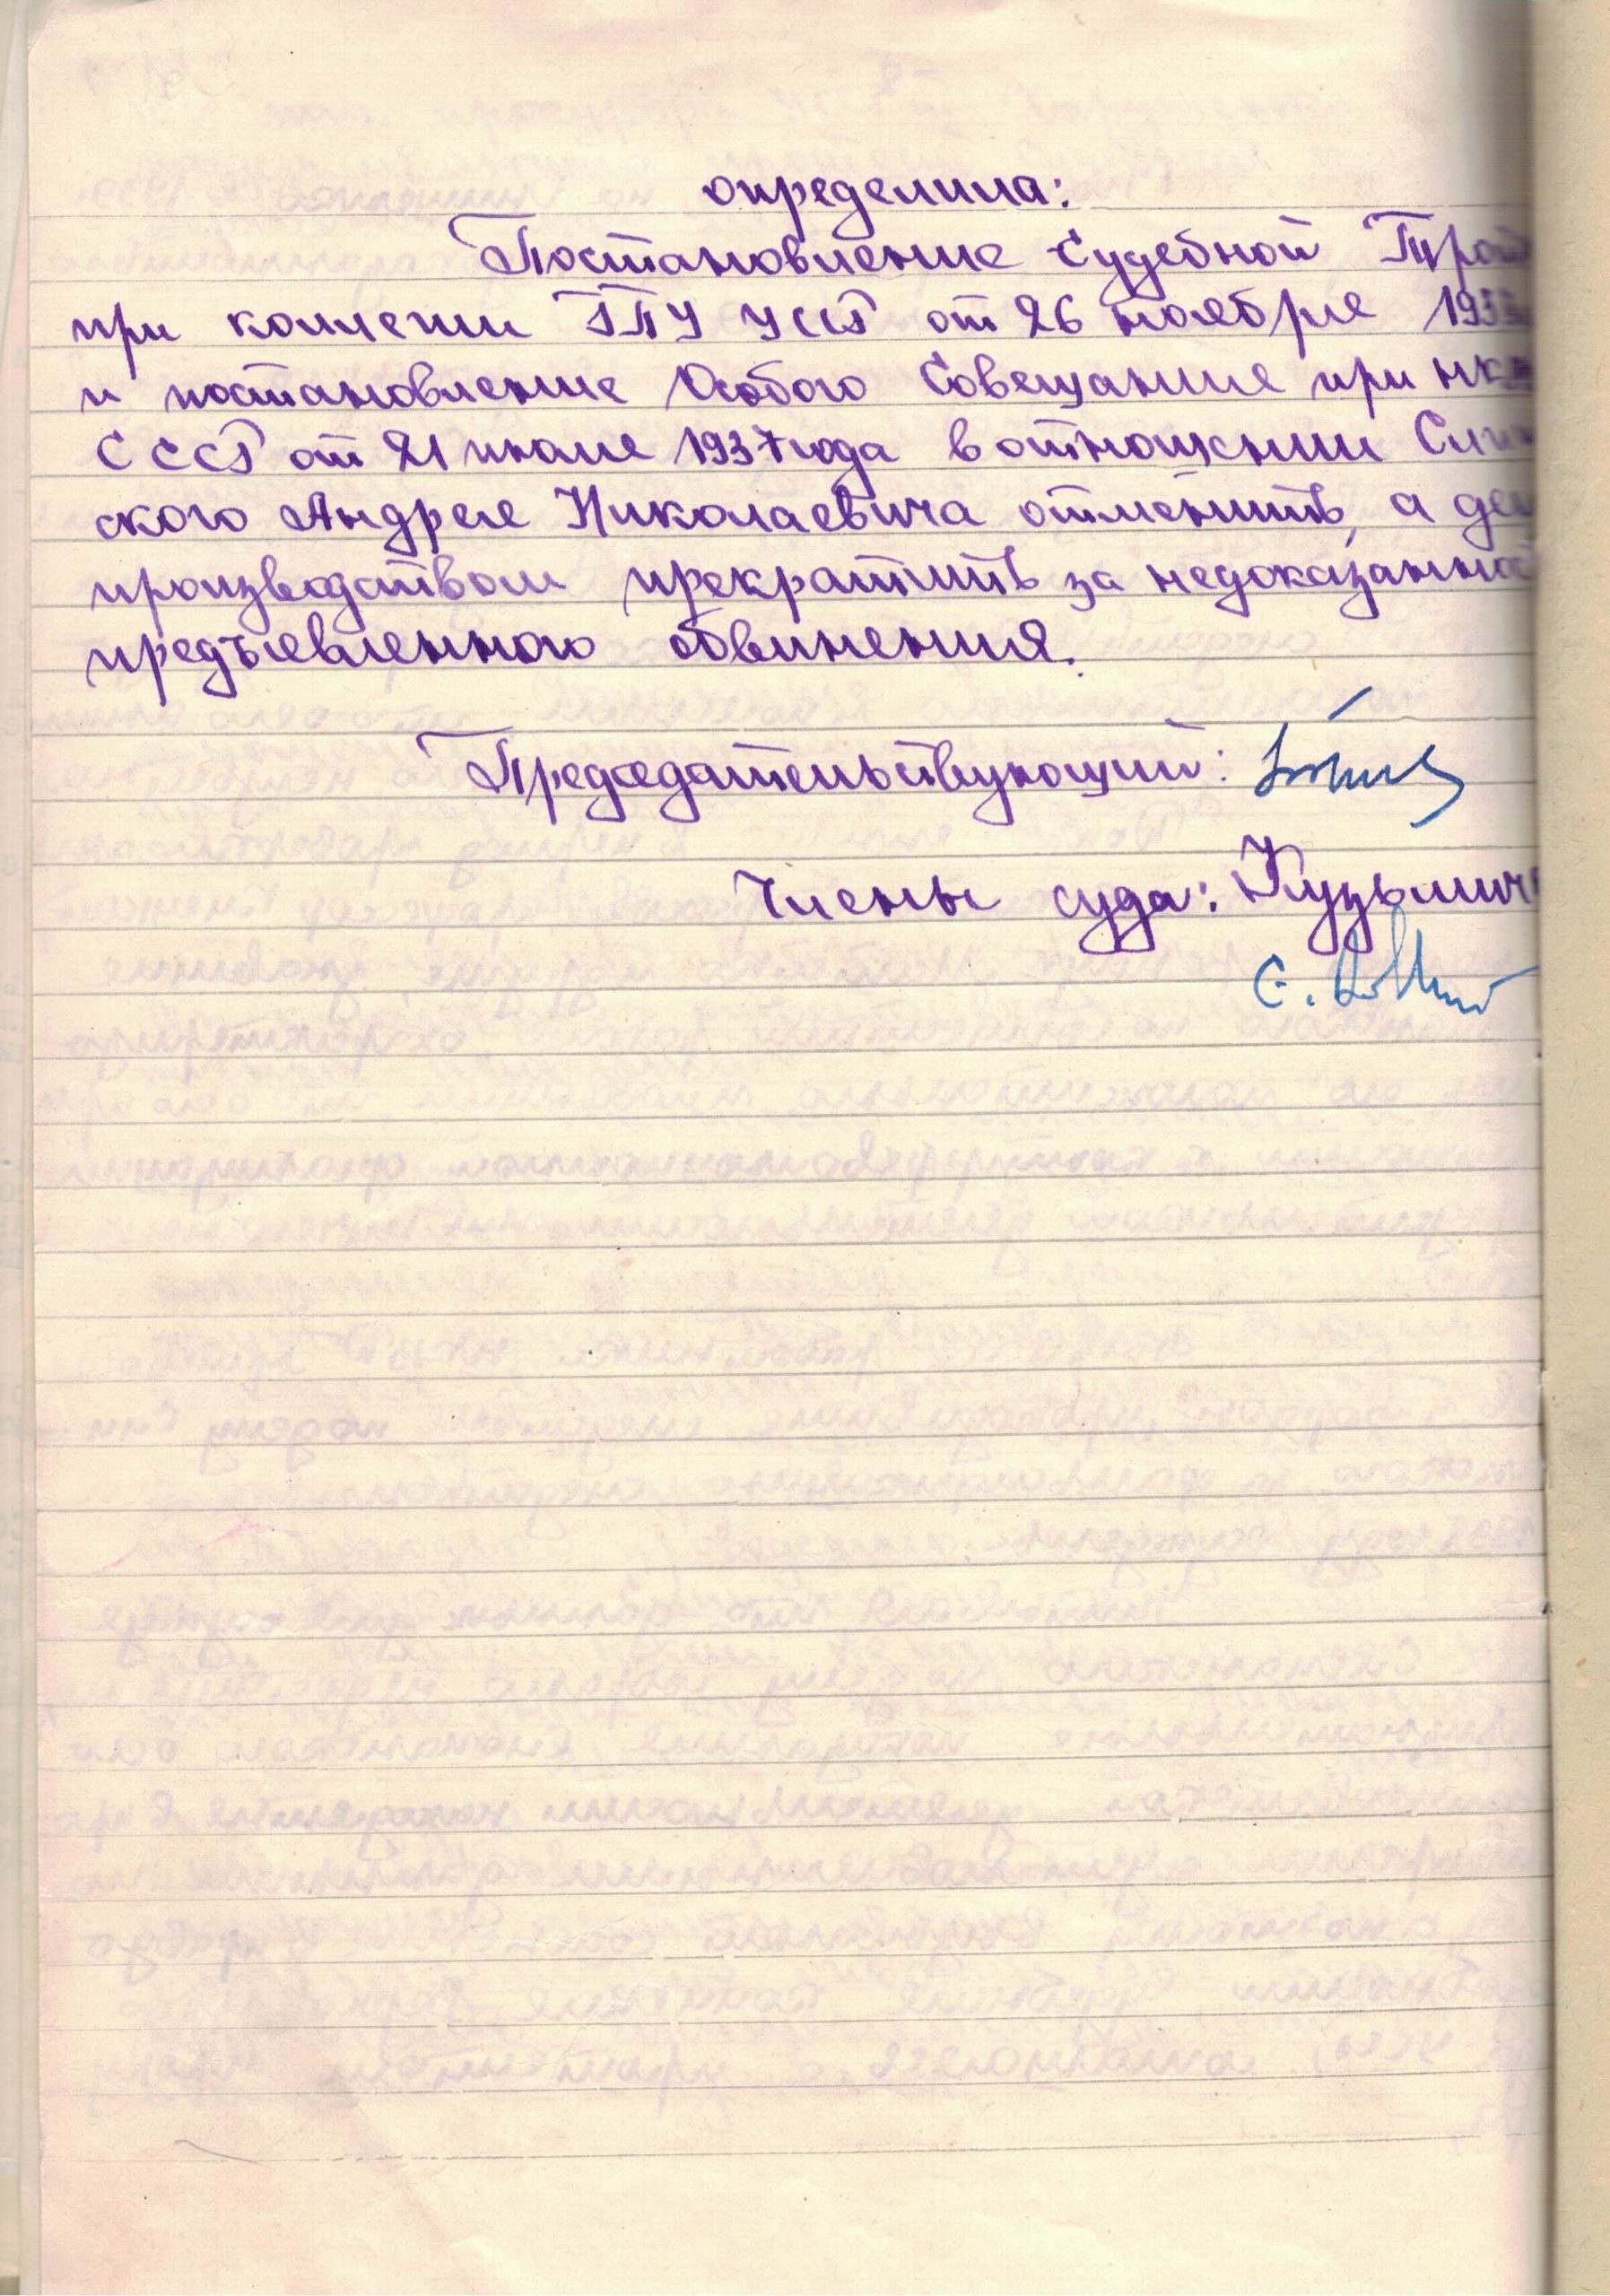 определила:
Постановление Судебной
при коллегии ГПУ УССР от 26 ноября
и постановление Особого Совещания при
СССР от 21 июля 1937 года в отношении
ского Андрея Николаевича отменить, а
производством прекратить за
предъявленного обвинения.
Председательствующий:
Члены суда: